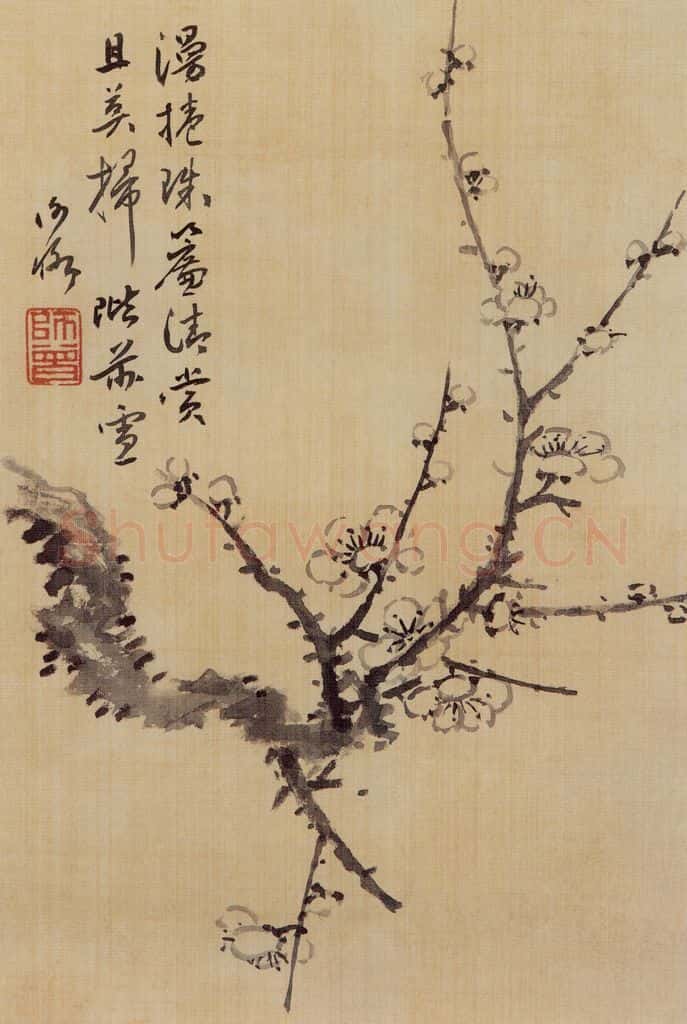 漫捲珠簾清賞
且莫掃階前雪
衡恪
師曾
Shufawang.CN